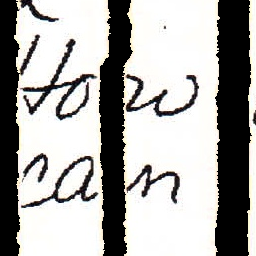 How
can